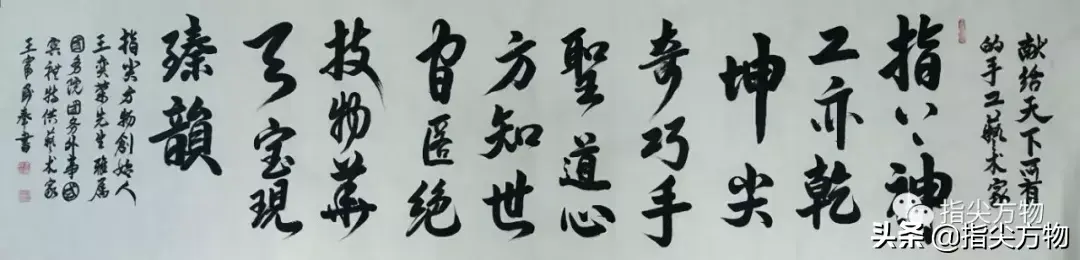 献给天下所有
的手工藝术家
指神
工亦乾
坤尖
奇巧手
聖道心
方知世
間匿绝
技物華
天宝現
臻韻
指尖方物創始人
王奕荣先生雅属
國务院國务外事國
宾礼特供藝术家
王書
指尖方物
头条@指尖方物